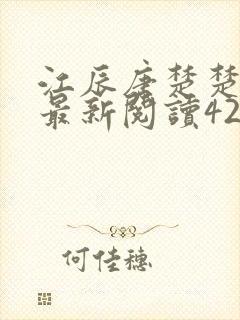 江辰唐楚楚
最新閱讀42
何佳穗